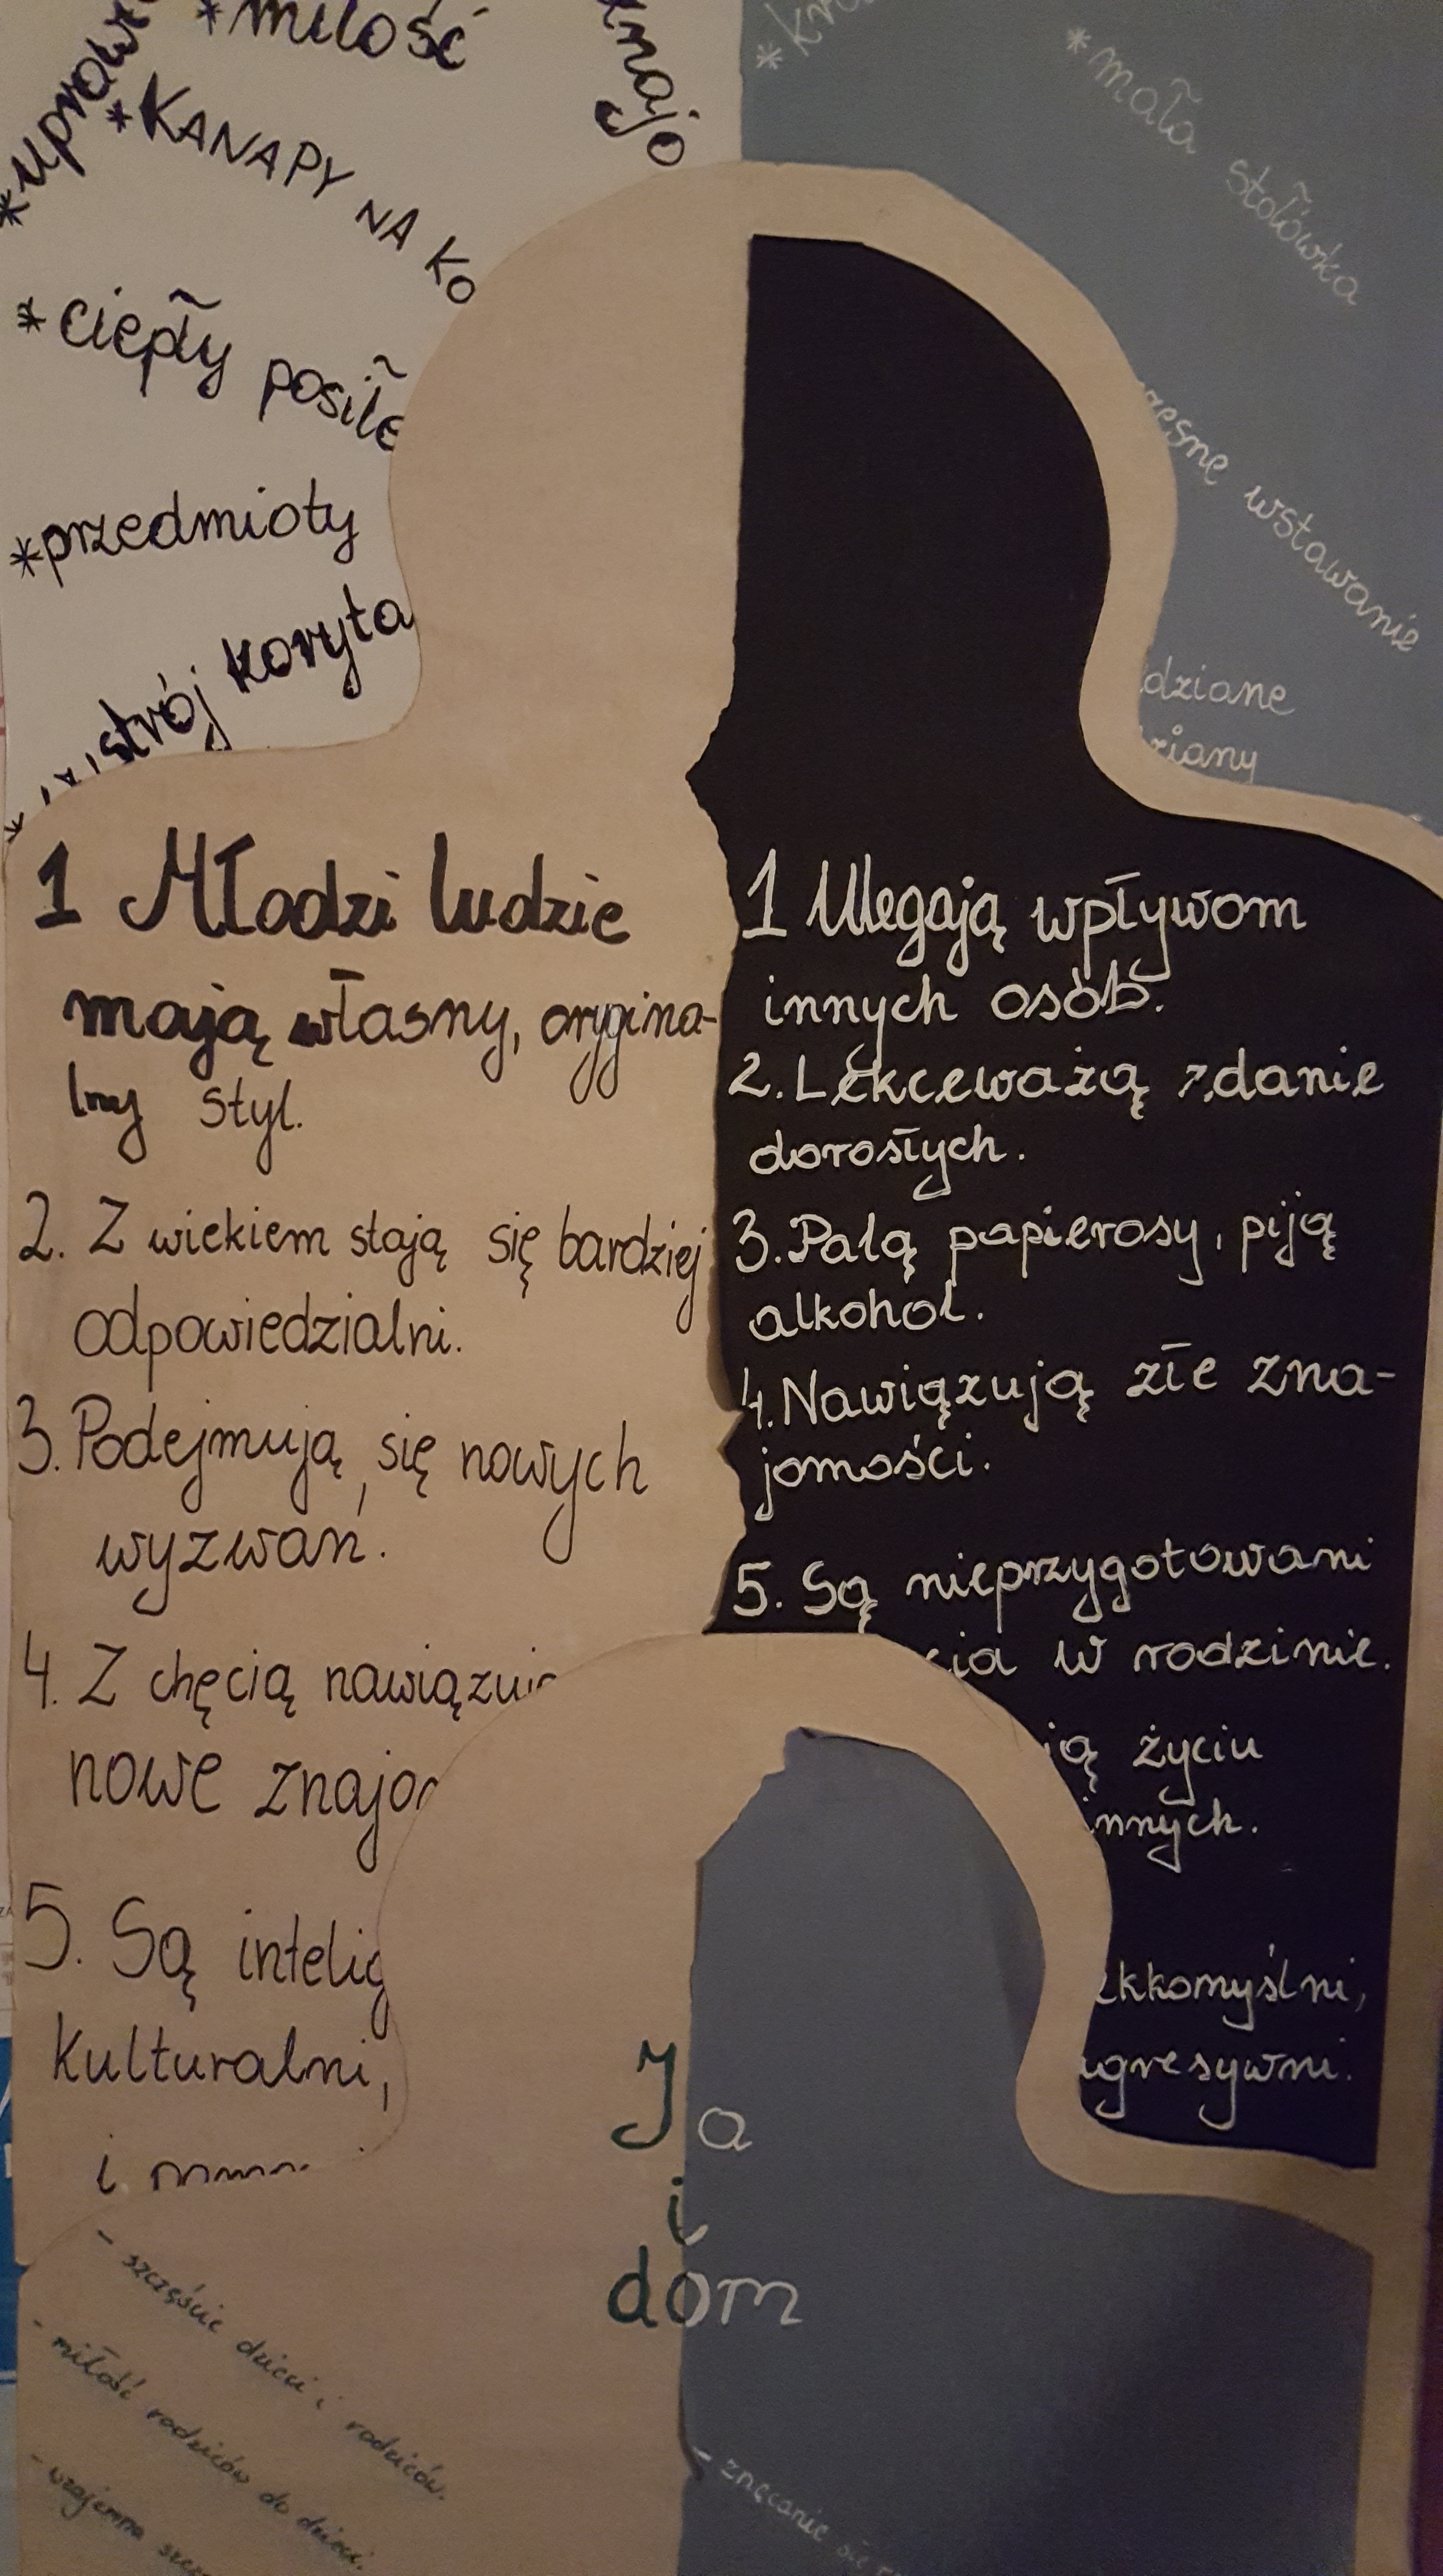 *miłość
*KANAPY NA KO
*ciepły posiłe
*przedmioty
strój koryta
*mała stołówka
wstawanie
dziane
1 Młodzi ludzie
mają własny, orygina-
lny styl.
2. Z wiekiem stają się bardziej
odpowiedzialni.
3. Podejmują się nowych
wyzwań.
4. Z chęcią nawiązują
nowe znajo
5. Są intelig
kulturalni,
i
1 Ulegają wpływom
innych osób.
2. Lekceważą zdanie
dorosłych.
3. Palą papierosy, piją
alkohol.
4. Nawiązują złe zna-
jomości.
5. Są nieprzygotowani
cia w rodzinie.
ją życiu
innych.
kkomyślni,
agresywni.
Ja
i
dom
- szczęście dzieci i rodziców.
- miłość rodziców do dzieci.
- wzajemna
- znęcanie się